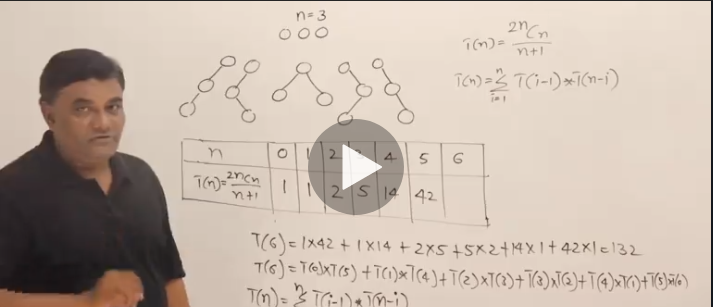 n=3
T(n)= 2nCn / n+1
T(n)= n Σ i=1 T(i-1)*T(n-i)
n 0 1 2 3 4 5 6
T(n)= 2nCn / n+1 1 1 2 5 14 42
T(6)=1×42+1×14+2×5+5×2+14×1+42×1=132
T(6)=T(0)×T(5)+T(1)×T(4)+T(2)×T(3)+T(3)×T(2)+T(4)×T(1)+T(5)×T(0)
T(n)= n Σ T(i-1)*T(n-i)